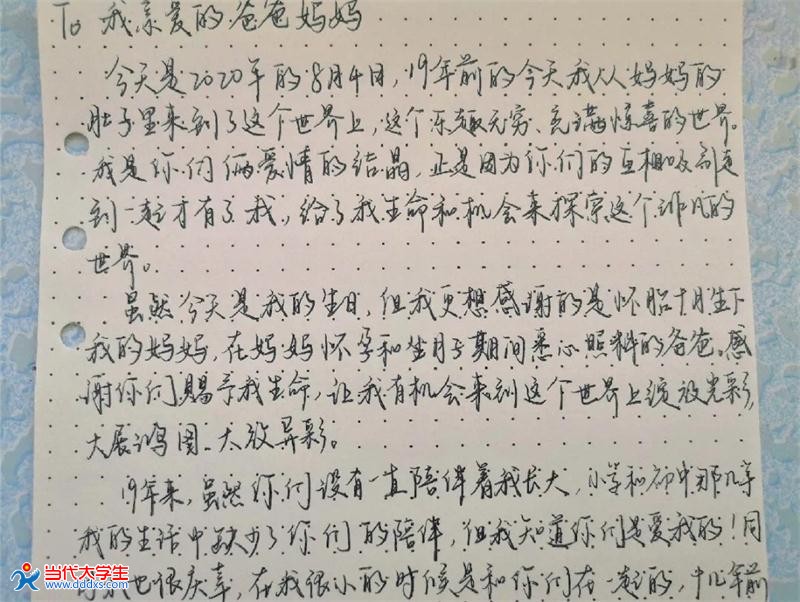 To 我亲爱的爸爸妈妈
今天是2020年的8月4日，19年前的今天我从妈妈的
肚子里来到了这个世界上，这个乐趣无穷、充满惊喜的世界。
我是你们俩爱情的结晶，正是因为你们的互相吸引走
到一起才有了我，给了我生命和机会来探索这个非凡的
世界。
虽然今天是我的生日，但我更想感谢的是怀胎十月生下
我的妈妈，在妈妈怀孕和坐月子期间悉心照料的爸爸。感
谢你们赐予我生命，让我有机会来到这个世界上绽放光彩，
大展鸿图、大放异彩。
19年来，虽然你们没有一直陪伴着我长大，小学和初中那几年
我的生活中缺少了你们的陪伴，但我知道你们是爱我的！同
我也很庆幸，在我很小的时候是和你们在一起的，十几年前
当代大学生
www.dddxs.com